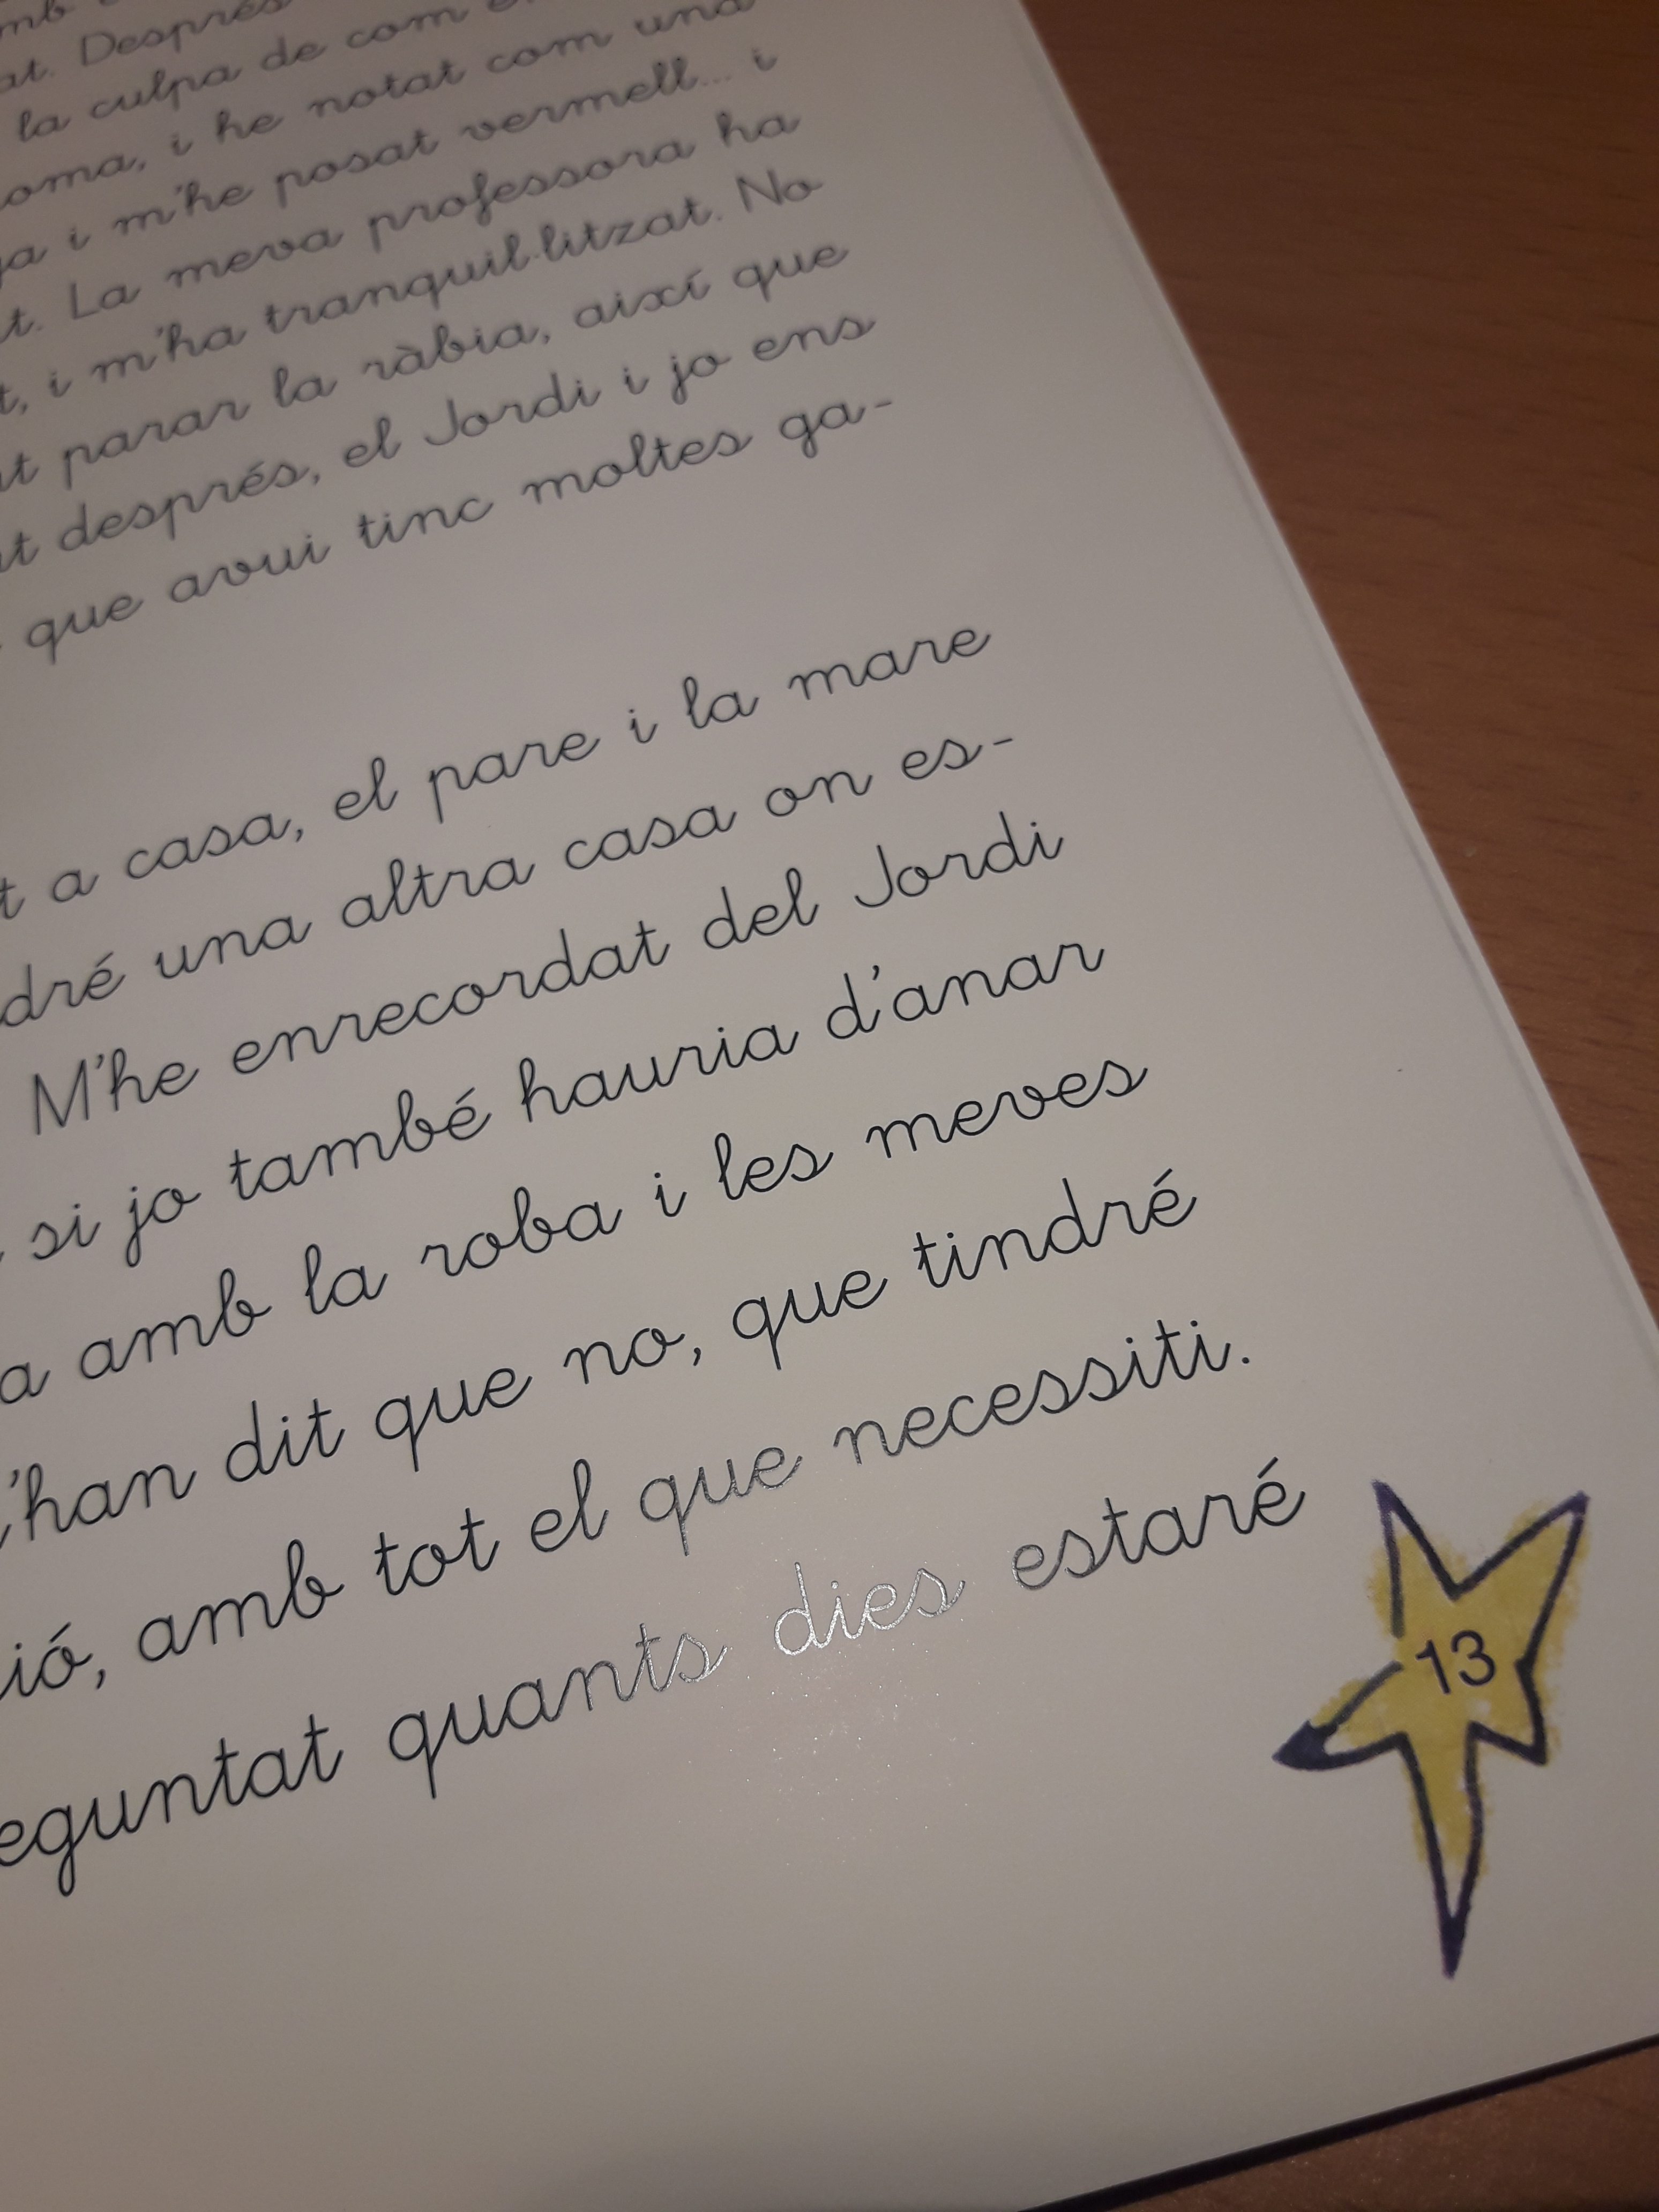 at. Després
la culpa de com
oma, i he notat com una
ga i m'he posat vermell... i
t. La meva professora ha
t, i m'ha tranquil·litzat. No
t parar la ràbia, així que
t després, el Jordi i jo ens
que avui tinc moltes ga-
t a casa, el pare i la mare
dré una altra casa on es-
M'he enrecordat del Jordi
si jo també hauria d'anar
a amb la roba i les meves
'han dit que no, que tindré
ió, amb tot el que necessiti.
eguntat quants dies estaré
13